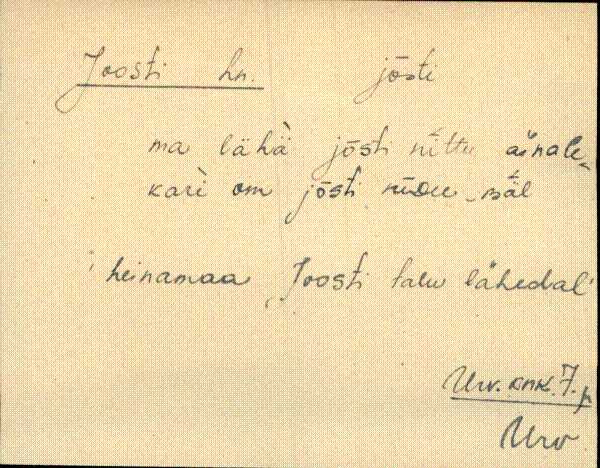 Joosti hn. jōsti
ma lähä̀ jōsti nīttu äinale
kari om jōsti mäl
heinamaa Joosti talu lähedal
Urv. knk.
Urv